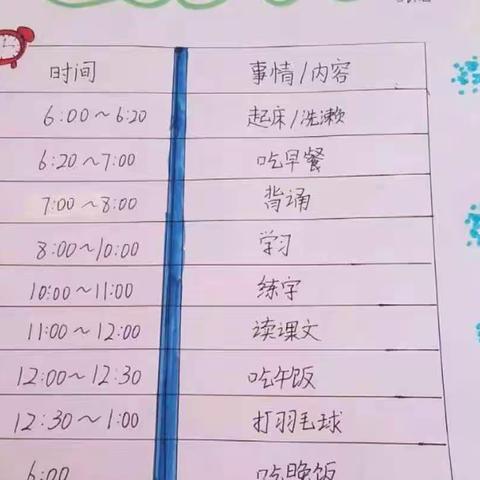 时间 事情/内容
6:00～6:20 起床/洗漱
6:20～7:00 吃早餐
7:00～8:00 背诵
8:00～10:00 学习
10:00～11:00 练字
11:00～12:00 读课文
12:00～12:30 吃午饭
12:30～1:00 打羽毛球
6:00 吃晚饭